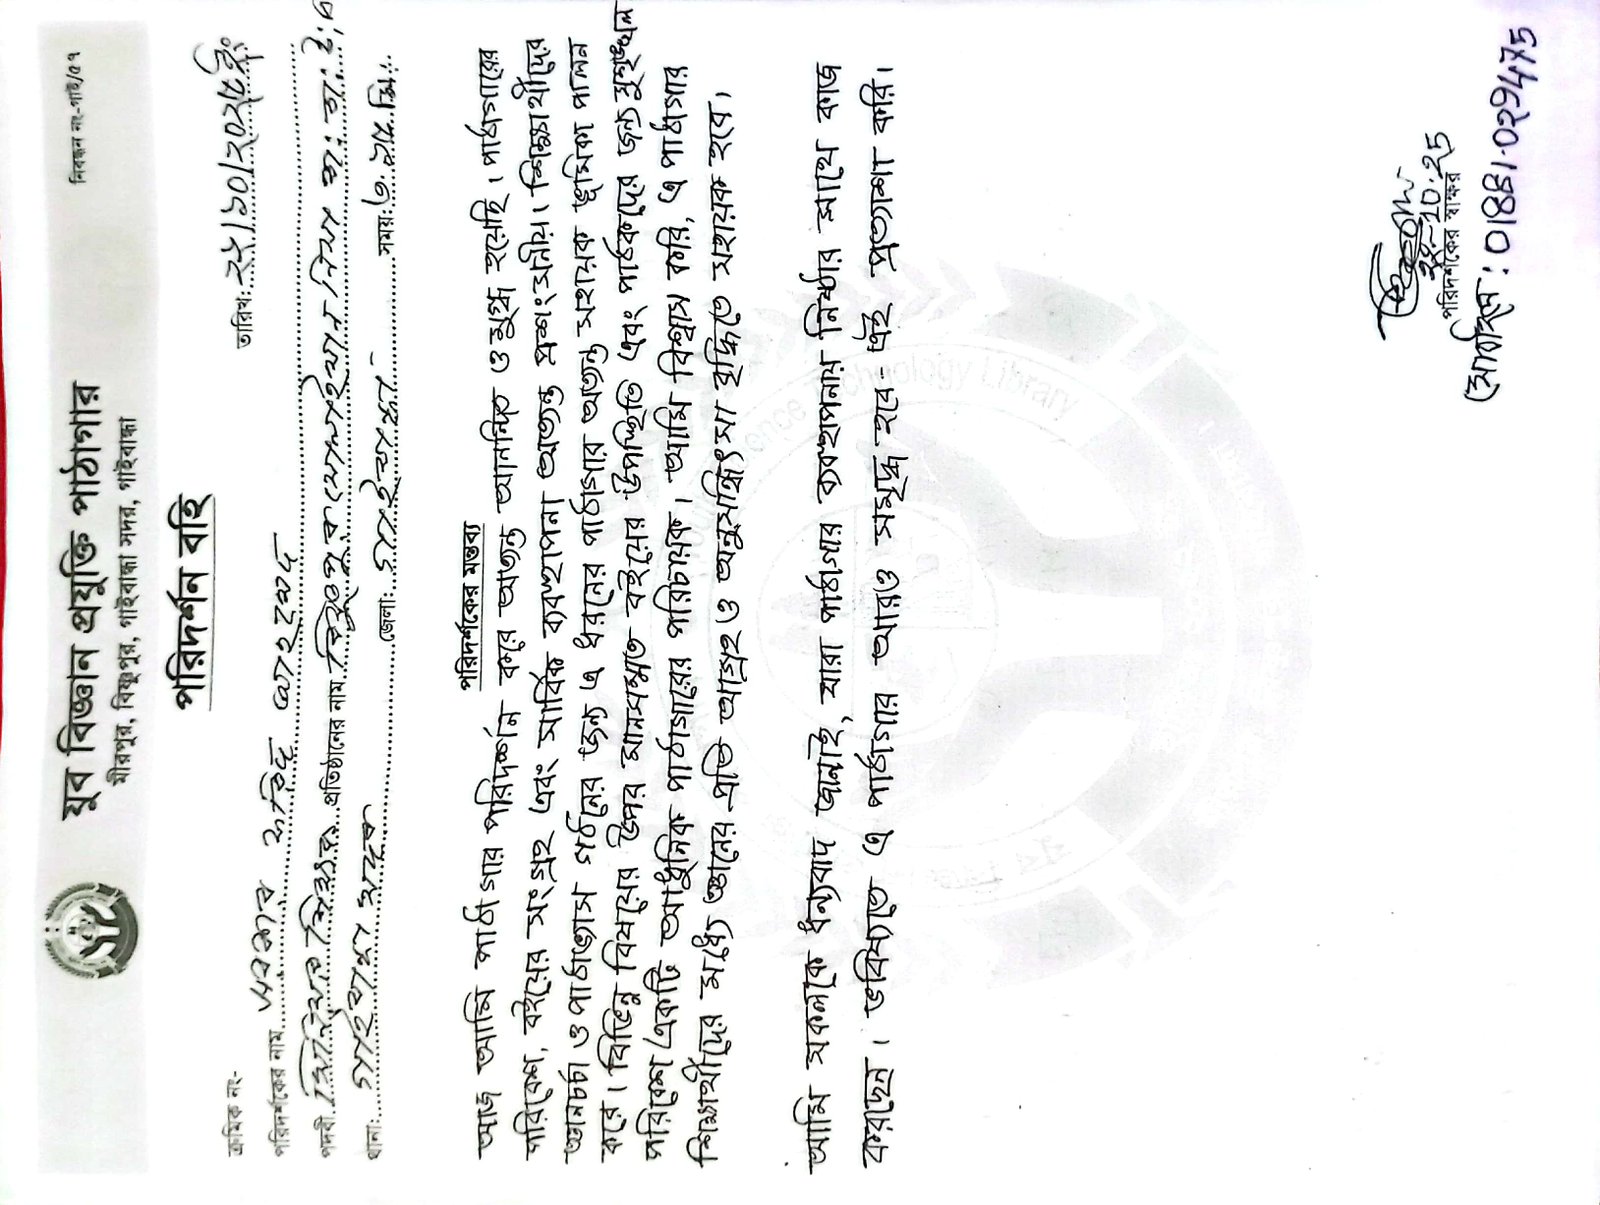 নিবন্ধন নং-গাই/৫৭
যুব বিজ্ঞান প্রযুক্তি পাঠাগার
মীরপুর, বিষ্ণুপুর, গাইবান্ধা সদর, গাইবান্ধা
পরিদর্শন বহি
ক্রমিক নং-
তারিখ: ২৫/১০/২০২৫ইং
পরিদর্শকের নাম
পদবী সিনিয়র শিক্ষক প্রতিষ্ঠানের নাম
থানা: জেলা: সময়:
পরিদর্শকের মন্তব্য
আজ আমি পাঠাগার পরিদর্শন করে অত্যন্ত আনন্দিত ও মুগ্ধ হয়েছি। পাঠাগারের
পরিবেশ, বইয়ের সংগ্রহ এবং সার্বিক ব্যবস্থাপনা অত্যন্ত প্রশংসনীয়। শিক্ষার্থীদের
জ্ঞানচর্চা ও পাঠাভ্যাস গঠনের জন্য এ ধরনের পাঠাগার অত্যন্ত সহায়ক ভূমিকা পালন
করে। বিভিন্ন বিষয়ের উপর মানসম্মত বইয়ের উপস্থিতি এবং পাঠকদের জন্য সুশৃঙ্খল
পরিবেশ একটি আধুনিক পাঠাগারের পরিচায়ক। আমি বিশ্বাস করি, এ পাঠাগার
শিক্ষার্থীদের মধ্যে জ্ঞানের প্রতি আগ্রহ ও অনুসন্ধিৎসা বৃদ্ধিতে সহায়ক হবে।
আমি সকলকে ধন্যবাদ জানাই, যারা পাঠাগার ব্যবস্থাপনায় নিষ্ঠার সাথে কাজ
করছেন। ভবিষ্যতে এ পাঠাগার আরও সমৃদ্ধ হবে- এই প্রত্যাশা করি।
25-10-25
পরিদর্শকের স্বাক্ষর
মোবাইল: 01881-029475